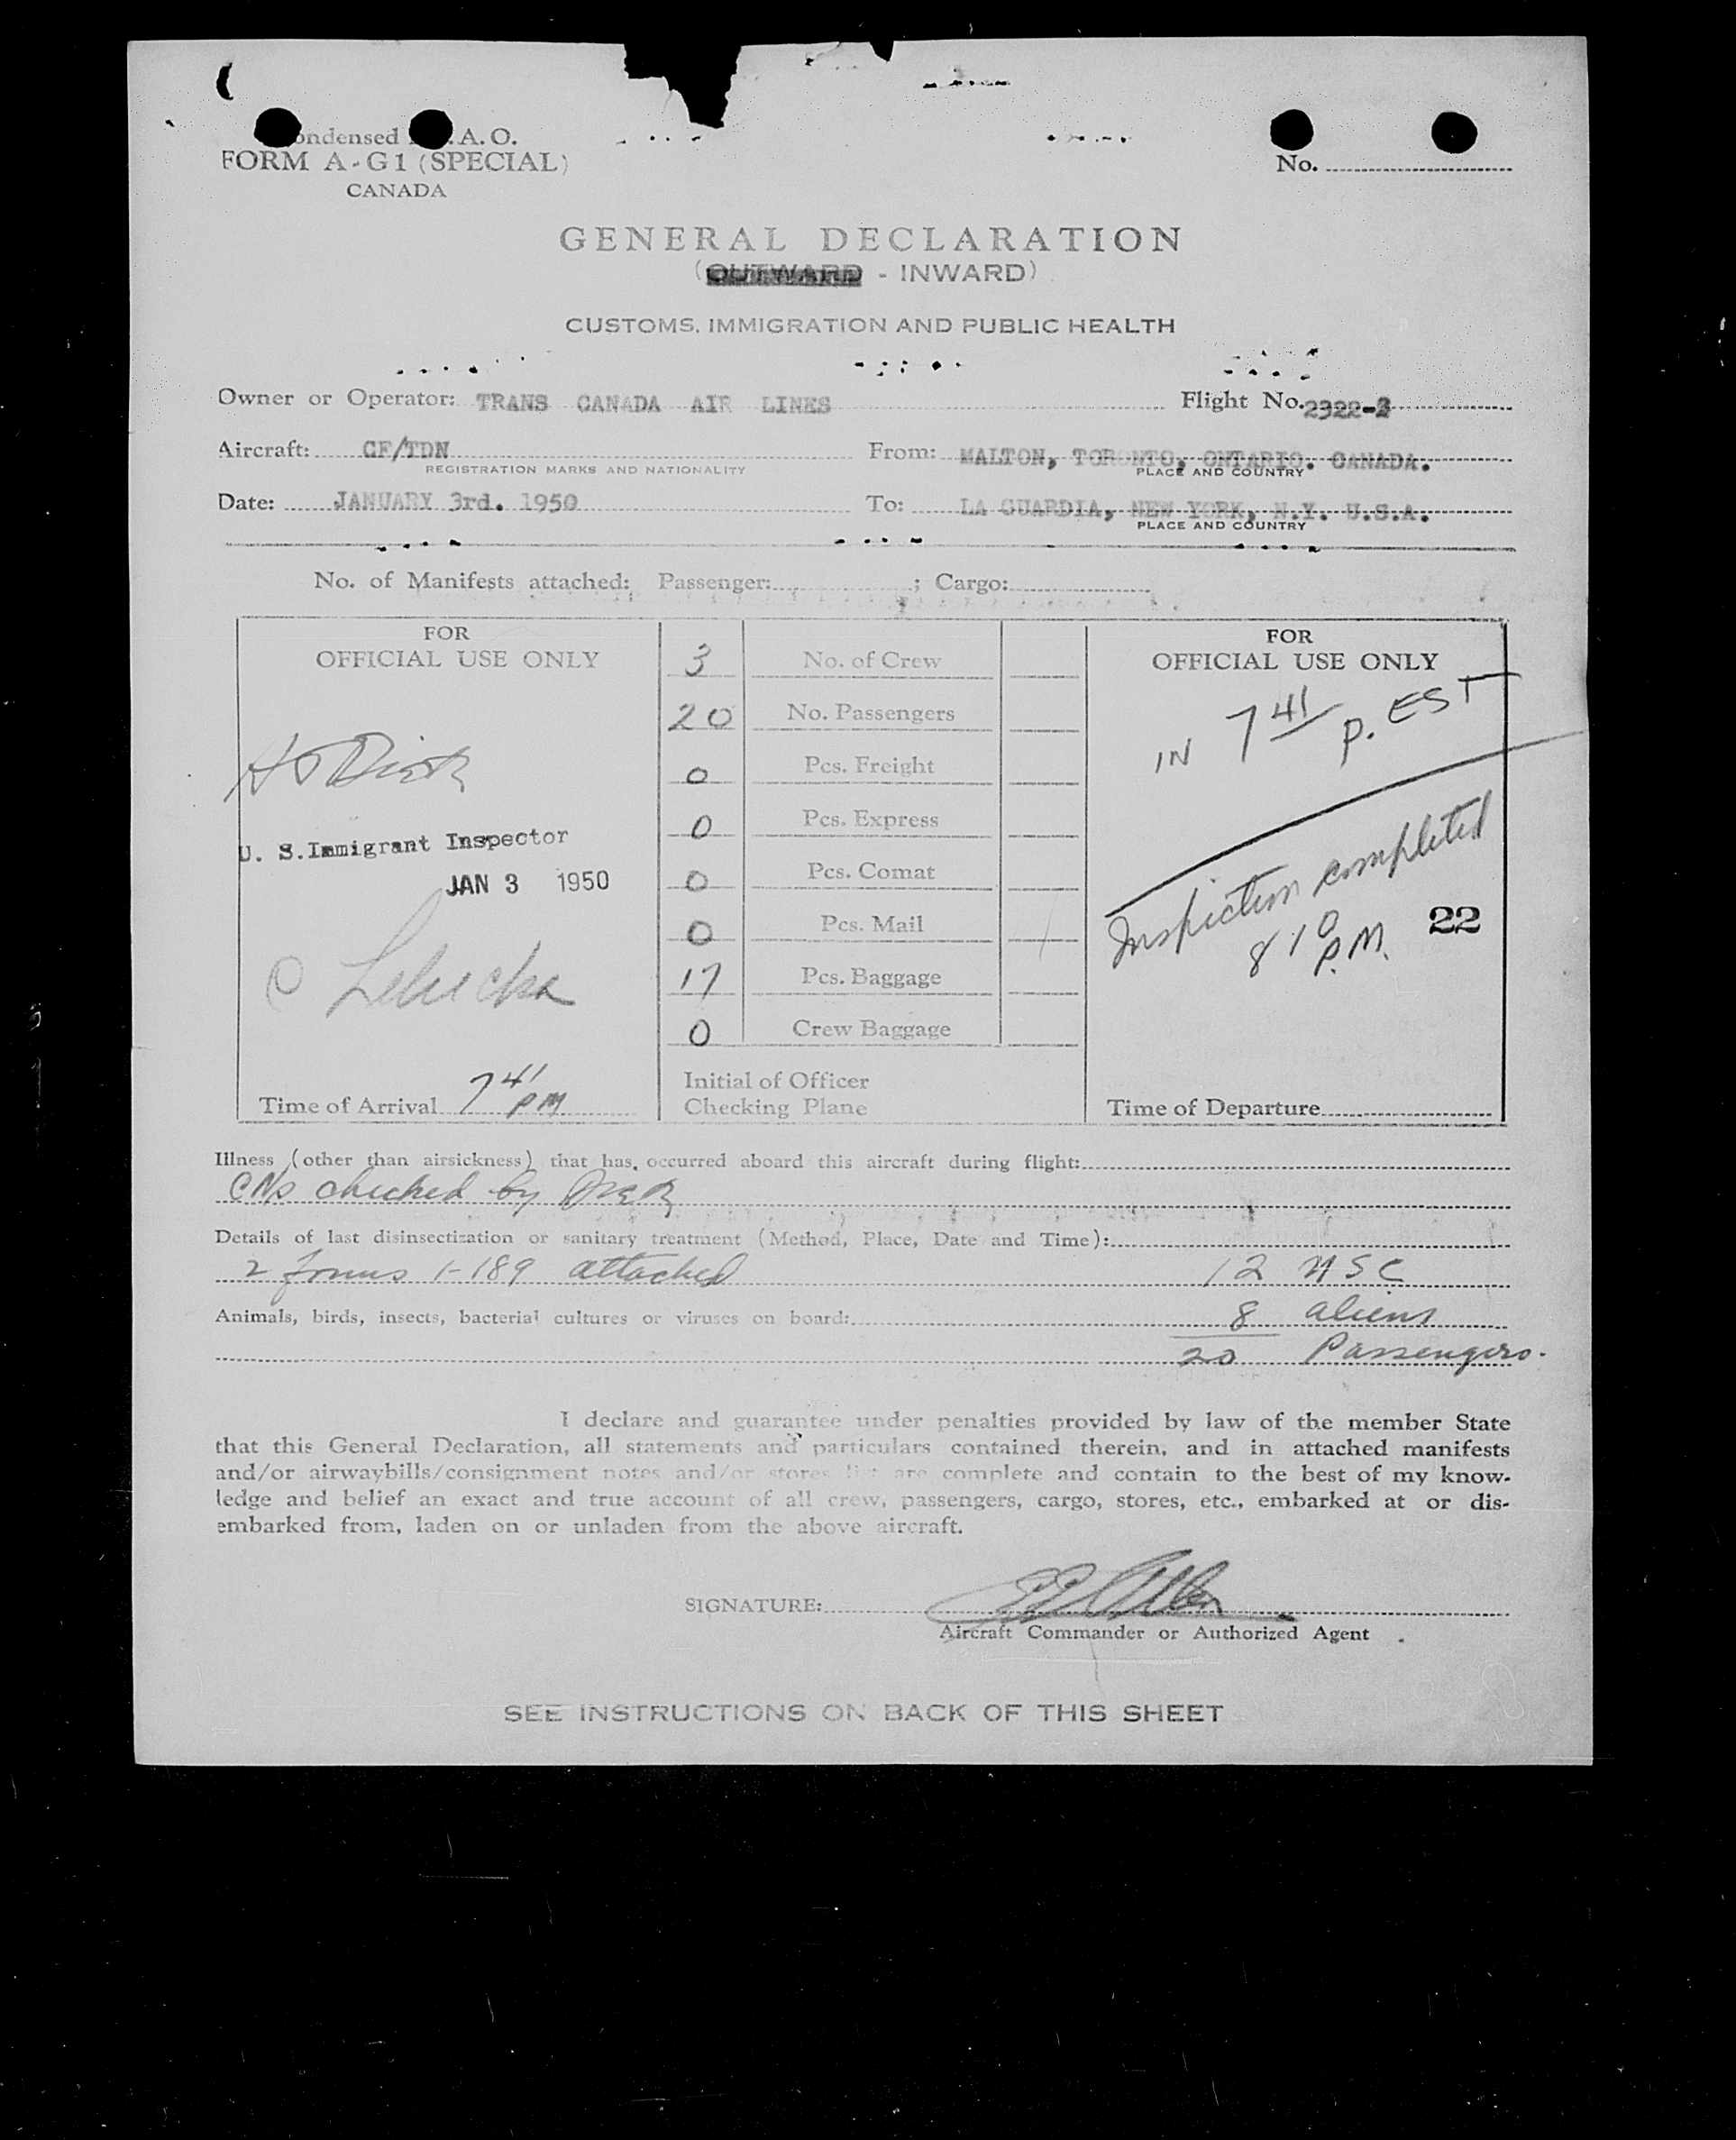 ondensed .A.O.
FORM A-G1 (SPECIAL)
CANADA
No.
GENERAL DECLARATION
(OUTWARD - INWARD)
CUSTOMS, IMMIGRATION AND PUBLIC HEALTH
Owner or Operator: TRANS CANADA AIR LINES Flight No.
Aircraft: CF/TDN From: MALTON, TORONTO, ONTARIO. CANADA.
REGISTRATION MARKS AND NATIONALITY PLACE AND COUNTRY
Date: JANUARY 3rd. 1950 To: LA GUARDIA, NEW YORK, N.Y. U.S.A.
PLACE AND COUNTRY
No. of Manifests attached: Passenger: ; Cargo:
FOR
OFFICIAL USE ONLY
U. S. Immigrant Inspector
JAN 3 1950
Time of Arrival 7 41 PM
3 No. of Crew
20 No. Passengers
0 Pcs. Freight
0 Pcs. Express
0 Pcs. Comat
0 Pcs. Mail
17 Pcs. Baggage
0 Crew Baggage
Initial of Officer
Checking Plane
FOR
OFFICIAL USE ONLY
IN 7 41 P. EST
Inspection completed
8 10 P.M.
22
Time of Departure
Illness (other than airsickness) that has occurred aboard this aircraft during flight:
checked by
Details of last disinsectization or sanitary treatment (Method, Place, Date and Time):
2 forms I-189 attached 12 USC
Animals, birds, insects, bacterial cultures or viruses on board: 8 aliens
20 Passengers.
I declare and guarantee under penalties provided by law of the member State
that this General Declaration, all statements and particulars contained therein, and in attached manifests
and/or airwaybills/consignment notes and/or stores list are complete and contain to the best of my know-
ledge and belief an exact and true account of all crew, passengers, cargo, stores, etc., embarked at or dis-
embarked from, laden on or unladen from the above aircraft.
SIGNATURE:
Aircraft Commander or Authorized Agent
SEE INSTRUCTIONS ON BACK OF THIS SHEET